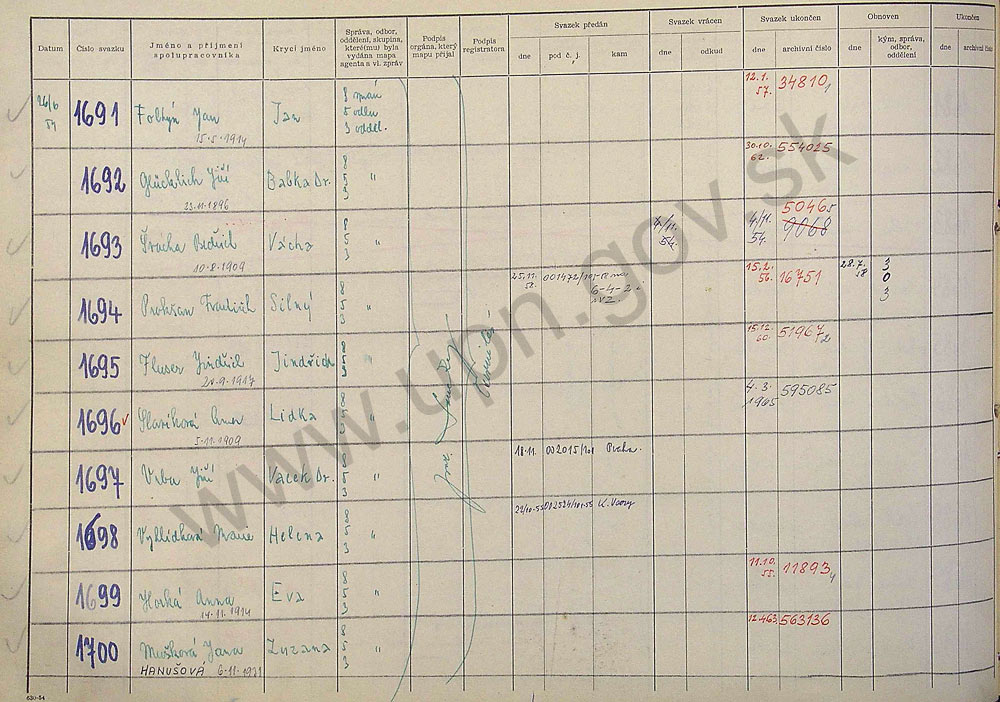 Datum
Číslo svazku
Jméno a příjmení
spolupracovníka
Krycí jméno
Správa, odbor,
oddělení, skupina,
které(mu) byla
vydána mapa
agenta a vl. zpráv
Podpis
orgána, který
mapu přijal
Podpis
registratora
Svazek předán
dne
pod č. j.
kam
Svazek vrácen
dne
odkud
Svazek ukončen
dne
archivní číslo
Obnoven
dne
kým, správa,
odbor,
oddělení
Ukončen
dne
archivní číslo
26/6
54
1691
Foltýn Jan
15·5·1914
Jan
8
5
3 odděl.
12.1.
57.
34810/1
1692
Glücklich Jiří
23·11·1896
Babka Dr.
8
5 "
3
30.10.
62.
554025
1693
10·8·1909
Vácha
8
5 "
3
4/11.
54.
4/11.
54.
50465
9068
1694
Silný
8
5 "
3
25.11.
6-4-2
15.2.
56.
16751
28.7.
58
3
0
3
1695
Fluser Jindřich
20·9·1917
Jindřich
8
5 "
3
15.12.
60.
51967/2
1696
Slavíková
5·11·1909
Lidka
8
5 "
3
4. 3.
1965
595085
1697
Vrba Jiří
Vacek Dr.
8
5 "
3
18.11.
002015/
Praha.
1698
Helena
8
5 "
3
22/10-55
K. Vary
1699
Horká Anna
14·11·1914
Eva
8
5 "
3
11.10.
55.
11893/4
1700
Mušková Jana
HANUŠOVÁ 6·11·1931
Zuzana
8
5 "
3
12.4.63
563136
www.upn.gov.sk
630-54